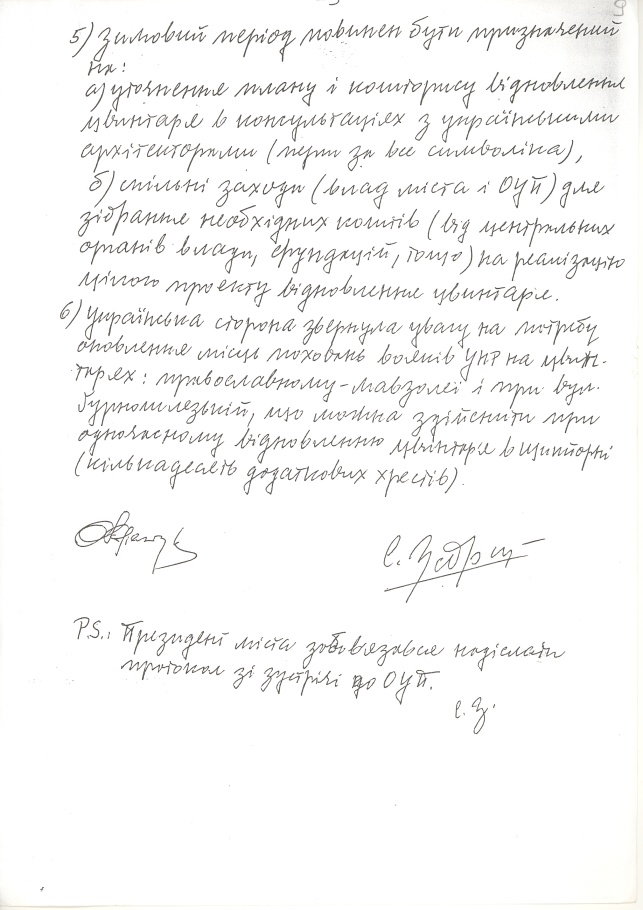 5) Зимовий період повинен бути призначений
на:
а) уточнення плану і кошторису відновлення
цвинтаря в консультаціях з українськими
архітекторами (перш за все символіка),
б) спільні заходи (влад міста і ОУП) для
зібрання необхідних коштів (від центральних
органів влади, фундацій, тощо) на реалізацію
цілого проекту відновлення цвинтаря.
6) Українська сторона звернула увагу на потребу
оновлення місць поховань вояків УНР на цвин-
тарях: православному-мавзолеї і при вул.
, що можна здійснити при
одночасному відновленню цвинтаря в Щипйорні
(кільканадесять додаткових хрестів).
P.S.: Президент міста зобов'язався надіслати
протокол зі зустрічі до ОУП.
С. З.